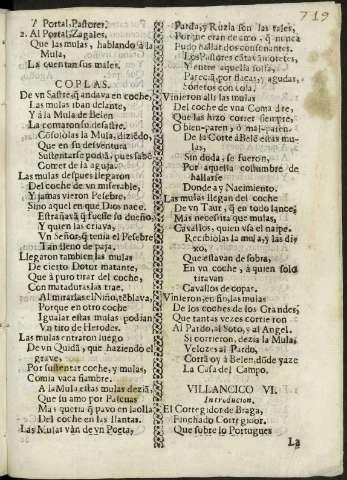 719
A Portal, Pastores.
2. Al Portal, Zagales,
Que las mulas, hablando â la
Mula,
La cuentan sus males.
COPLAS.
De vn Sastre, q̃ andava en coche,
Las mulas iban delante,
Y à la Mula de Belen
La tomaron su desastre.
Cõsolòlas la Mula, diziẽdo,
Que en su desventura
Sustentarse podiã, pues sabẽ
Comer de la aguja.
Las mulas despues llegaron
Del coche de vn miserable,
Y jamas vieron Pesebre,
Sino aquel en que Dios nace.
Estrañavã q̃ fuesse su dueño,
Y quien las criava,
Vn Señor, q̃ tenia el Pesebre
Tan lleno de paja.
Llegaron tambien las mulas
De cierto Dotor matante,
Que à puro tirar del coche,
Con mataduras las trae.
Al mirarlas el Niño, tẽblava,
Porque en otro coche
Igualar estas mulas podian
Vn tiro de Herodes.
Las mulas entraron luego
De vn Quidã, que haziendo el
grave,
Por sustentar coche, y mulas,
Comia vaca fiambre.
A la Mula estas mulas deziã,
Que su amo por Pascuas
Mas queria q̃ pavo en la olla
Del coche en las llantas.
Las Mulas vàn de vn Poeta,
Parda, y Ruzia son las tales,
Porque eran de amo, q̃ nunca
Pudo hallar dos consonantes.
Los Pastores cãtavã motetes,
entre aquella solfa,
Pareciã, por flacas, y agudas,
Sonetos con cola.
Vinieron allì las mulas
Del coche de vna Comadre,
Que las hizo correr siempre,
O bien-paren, ò mal-paren.
De la Corte à Belẽ estas mulas,
Sin duda, se fueron,
Por aquella costumbre de
hallarse
Donde ay Nacimiento.
Las mulas llegan del coche
De vn Taur, q̃ en todo lance,
Mas necesita que mulas,
Cavallos, quien vsa el naipe.
Recibiòlas la mula, y las dixo,
Que estavan de sobra,
En vn coche, à quien solo
tiravan
Cavallos de copas.
Vinieron, en fin, las mulas
De los coches de los Grandes,
Que tantas vezes corrieron
Al Pardo, al Soto, y al Angel.
Si corrieron, dezia la Mula,
Velozes al Pardo,
Corrã oy à Belen, dõde yaze
La Casa del Campo.
VILLANCICO VI.
Introducion.
El Corregidor de Braga,
Finchado Corregidor,
Que sobre lo Portugues
La